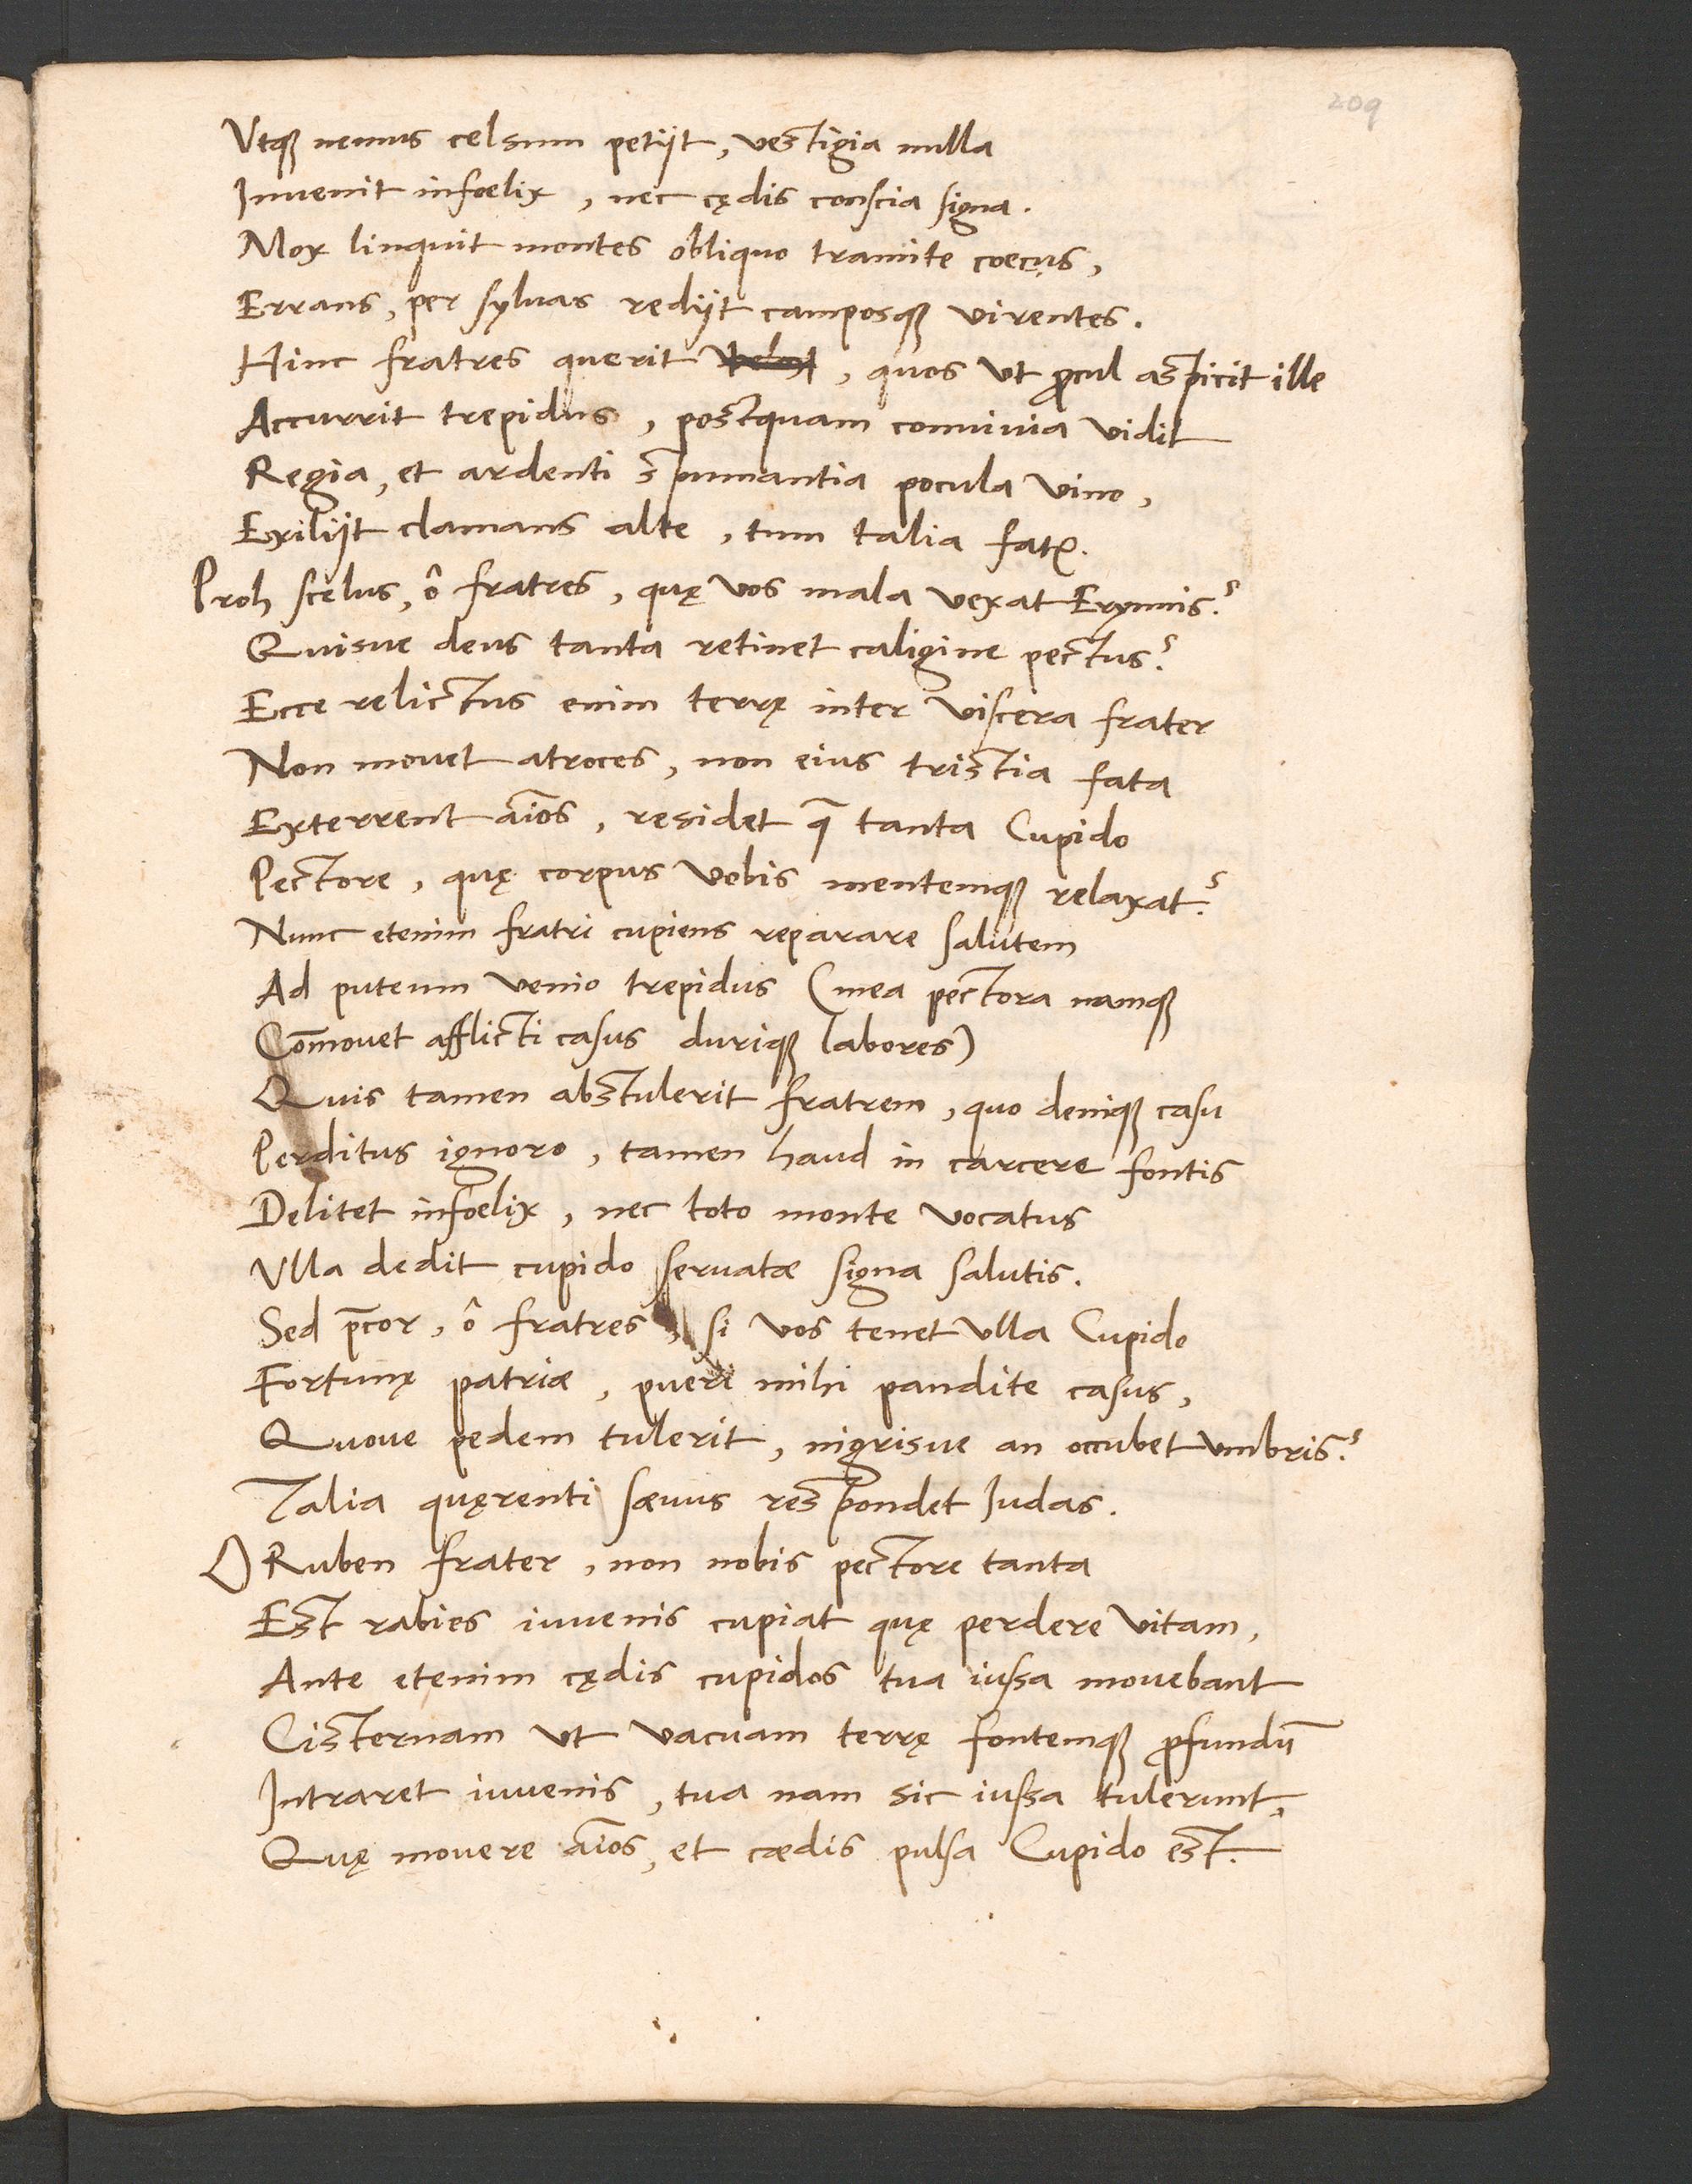 209
Vtqꝫ nemus celsum petijt, vestigia nulla
Inuenit infoelix, nec cędis conscia signa.
Mox linquit montes obliquo tramite coecus,
Errans, per syluas redijt camposqꝫ virentes.
Hinc fratres querit velox, quos vt ꝓcul aspicit ille
Accurrit trepidus, postquam conuiuia vidit
Regia, et ardenti spumantia pocula vino,
Exilijt clamans alte, tum talia fatꝛ.
Proh scelus, ô fratres, quę vos mala vexat Erynnis?
Quisue deus tanta retinet caligine pectus?
Ecce relictus enim terrę inter viscera frater
Non mouet atroces, non eius tristia fata
Exterrent aīos, residet q̄ tanta Cupido
Pectore, quę corpus vobis mentemqꝫ relaxat?
Nunc etenim fratri cupiens reparare salutem
Ad puteum venio trepidus (mea pectora namqꝫ
Com̄ouet afflicti casus duriqꝫ labores)
Quis tamen abstulerit fratrem, quo deniqꝫ casu
Perditus ignoro, tamen haud in carcere fontis
Delitet infoelix, nec toto monte vocatus
Vlla dedit cupido seruatæ signa salutis.
Sed p̄cor, ô fratres, si vos tenet vlla Cupido
Fortunę patriæ, pueri mihi pandite casus,
Quoue pedem tulerit, nigrisue an occubet vmbris?
Talia quęrenti sæuus respondet Iudas.
O Ruben frater, non nobis pectore tanta
Est rabies iuuenis cupiat quę perdere vitam,
Ante etenim cędis cupidos tua iussa mouebant
Cisternam vt vacuam terrę fontemqꝫ ꝓfundū
Intraret iuuenis, tua nam sic iussa tulerunt,
Quę mouere aīos, et cædis pulsa Cupido est.